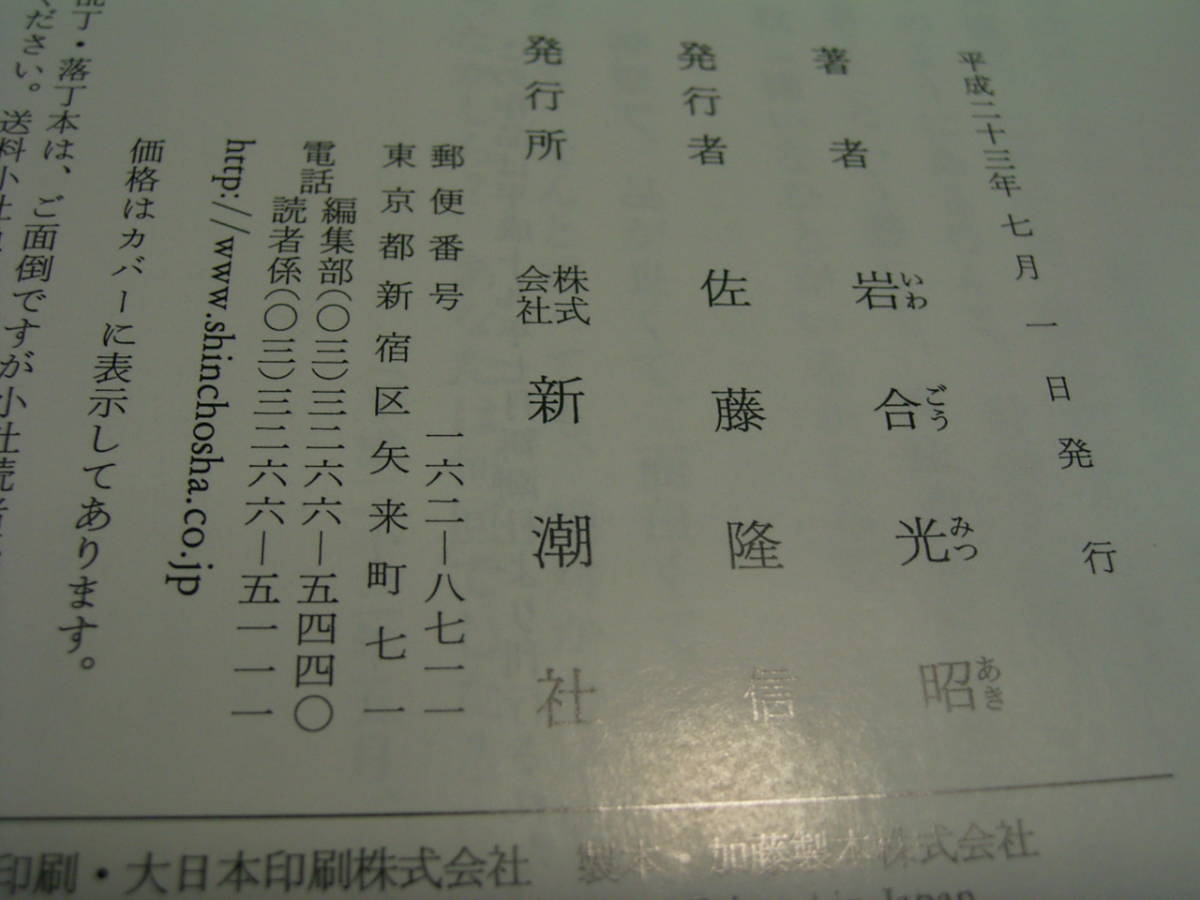 平成二十三年七月一日発行
著者 岩合光昭
いわ ごう みつ あき
発行者 佐藤隆信
発行所 株式会社 新潮社
郵便番号 一六二―八七一一
東京都新宿区矢来町七一
電話 編集部(〇三)三二六六―五四四〇
読者係(〇三)三二六六―五一一一
http://www.shinchosha.co.jp
価格はカバーに表示してあります。
丁・落丁本は、ご面倒ですが小社読者
ください。送料小社
印刷・大日本印刷株式会社 製本・加藤製本株式会社
Japan